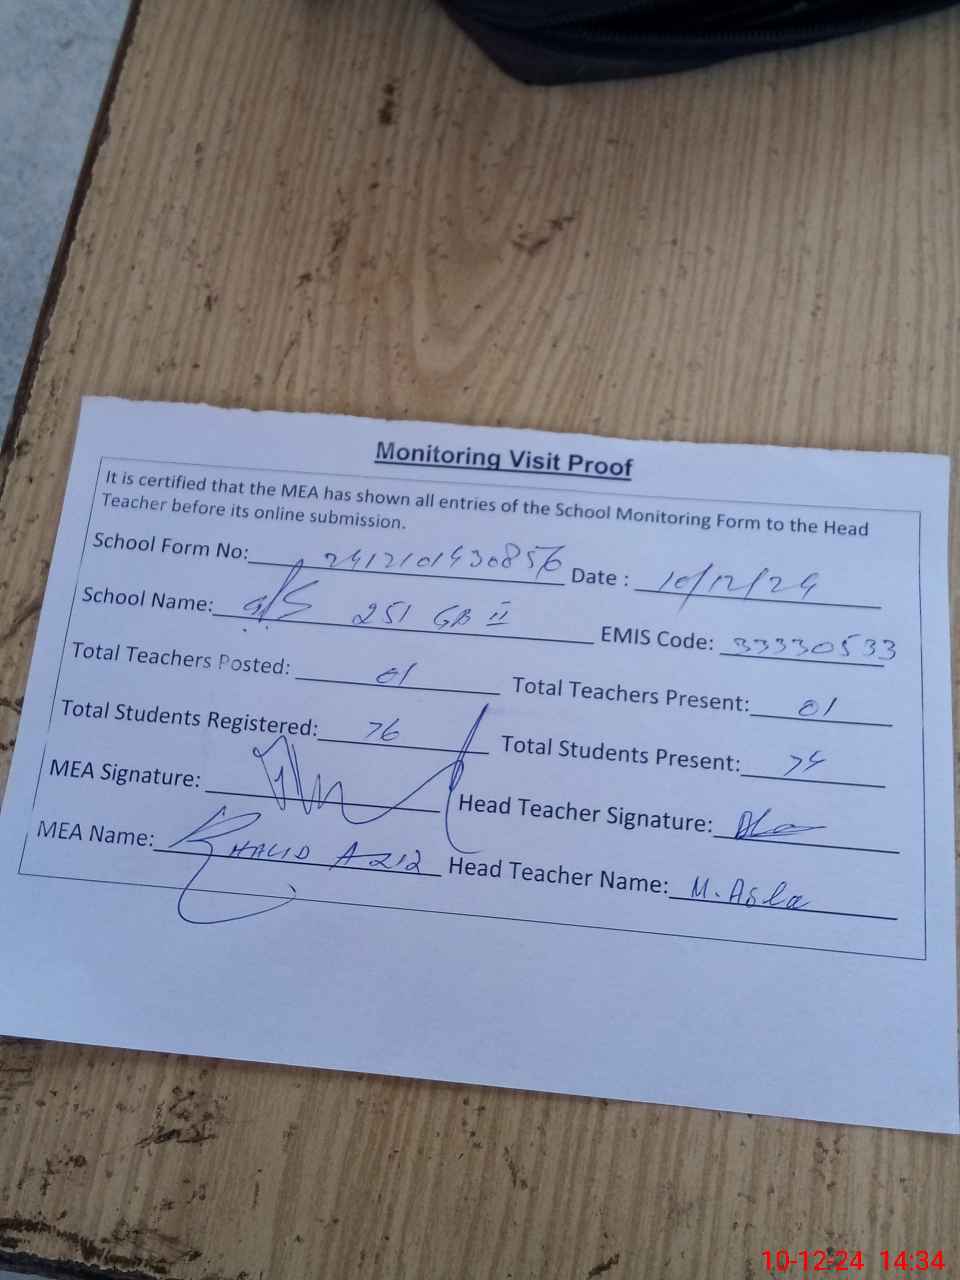 Monitoring Visit Proof
It is certified that the MEA has shown all entries of the School Monitoring Form to the Head
Teacher before its online submission.
School Form No: 2412101430856 Date : 10/12/24
School Name: 251 GB II EMIS Code: 33330533
Total Teachers Posted: 01 Total Teachers Present: 01
Total Students Registered: 76 Total Students Present: 74
MEA Signature: Head Teacher Signature:
MEA Name: KHALID AZIZ Head Teacher Name: M. Asla
10-12-24 14:34